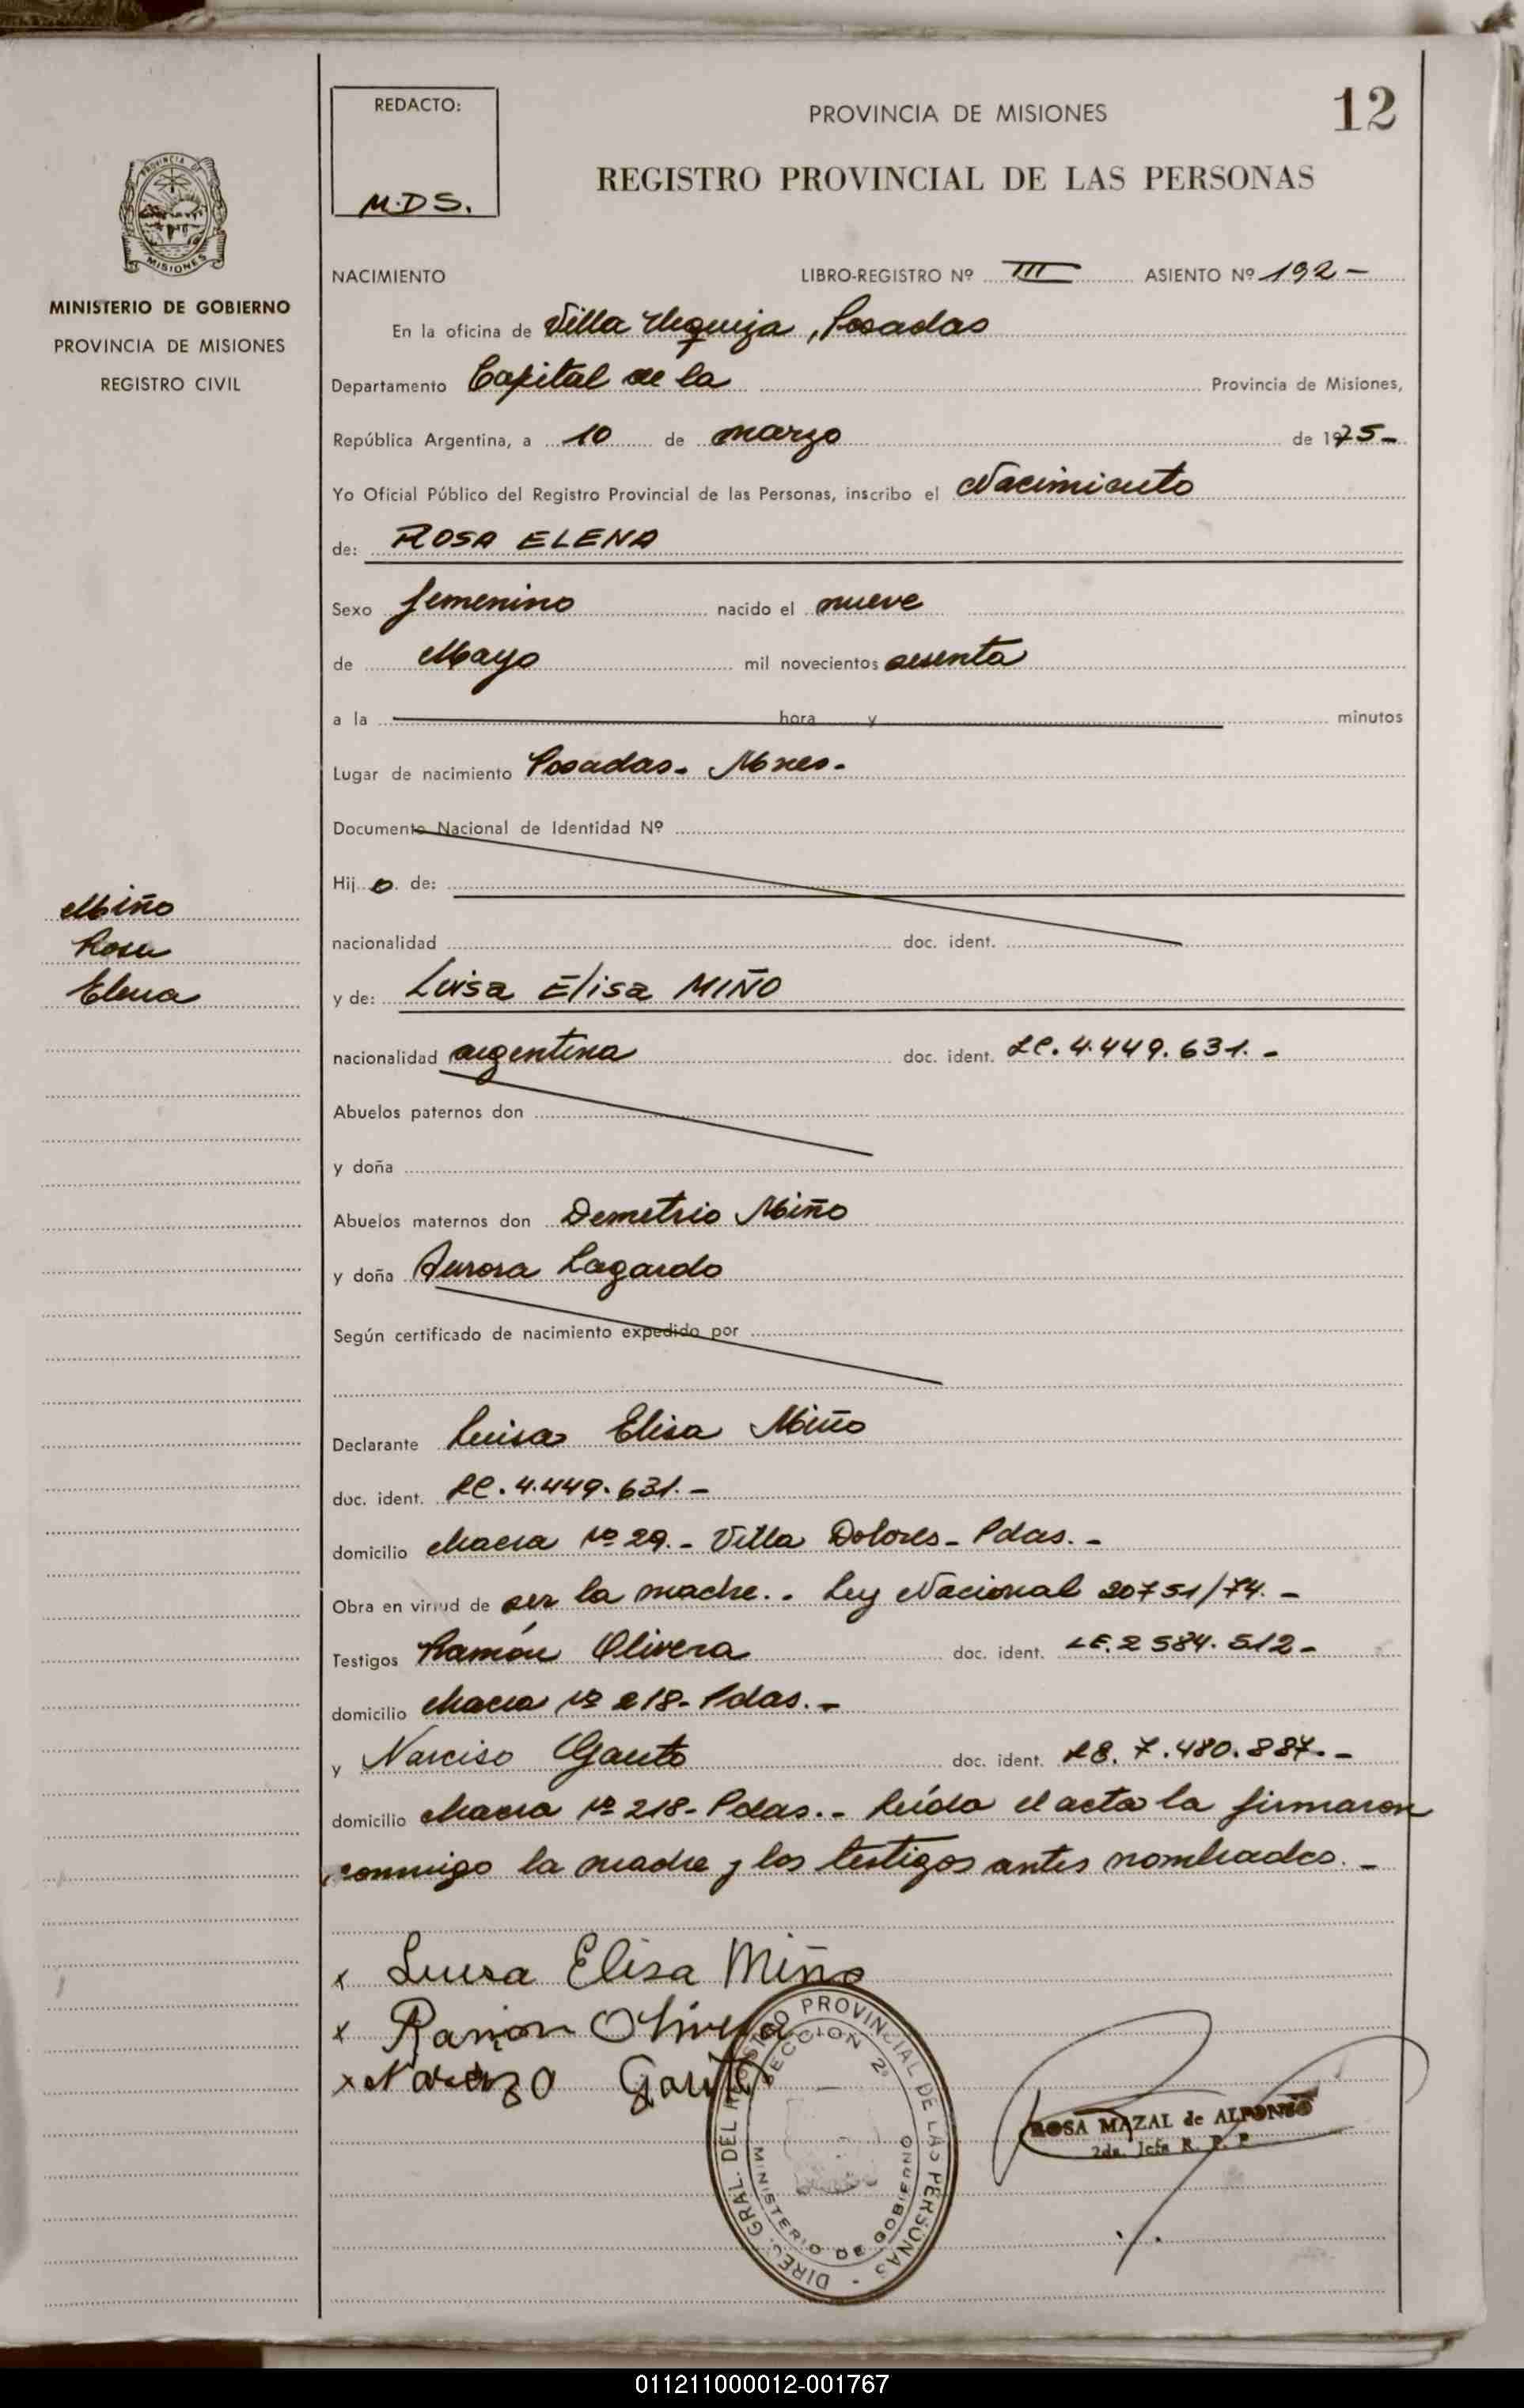 REDACTO:
M.D.S.
PROVINCIA DE MISIONES
12
REGISTRO PROVINCIAL DE LAS PERSONAS
PROVINCIA DE
MISIONES
MINISTERIO DE GOBIERNO
PROVINCIA DE MISIONES
REGISTRO CIVIL
NACIMIENTO LIBRO-REGISTRO Nº III ASIENTO Nº 192-
En la oficina de Villa Urquiza, Posadas
Departamento Capital de la Provincia de Misiones,
República Argentina, a 10 de marzo de 1975-
Yo Oficial Público del Registro Provincial de las Personas, inscribo el Nacimiento
de: ROSA ELENA
Sexo femenino nacido el nueve
de Mayo mil novecientos sesenta
a la hora y minutos
Lugar de nacimiento Posadas- Mnes-
Documento Nacional de Identidad Nº
Hij o de:
Miño
Rosa
Elena
nacionalidad doc. ident.
y de: Luisa Elisa MIÑO
nacionalidad argentina doc. ident. LC. 4.449.631.-
Abuelos paternos don
y doña
Abuelos maternos don Demetrio Miño
y doña Aurora Lagardo
Según certificado de nacimiento expedido por
Declarante Luisa Elisa Miño
doc. ident. LC. 4.449.631.-
domicilio Chacra Nº 29.- Villa Dolores- Pdas.-
Obra en virtud de ser la madre.- Ley Nacional 20751/74.-
Testigos Ramón Olivera doc. ident. LE. 2 584. 512-
domicilio Chacra Nº 218- Pdas.-
y Narciso Gauto doc. ident. LE. 7.480.887.-
domicilio Chacra Nº 218- Pdas.- Leída el acta la firmaron
conmigo la madre y los testigos antes nombrados.-
x Luisa Elisa Miño
x Ramon Olivera
x Narcizo Gauto
DIREC. GRAL. DEL REGISTRO PROVINCIAL DE LAS PERSONAS -
SECCION 2ª
MINISTERIO DE GOBIERNO
ROSA MAZAL de ALFONSO
2da. Jefa R. P. P.
011211000012-001767